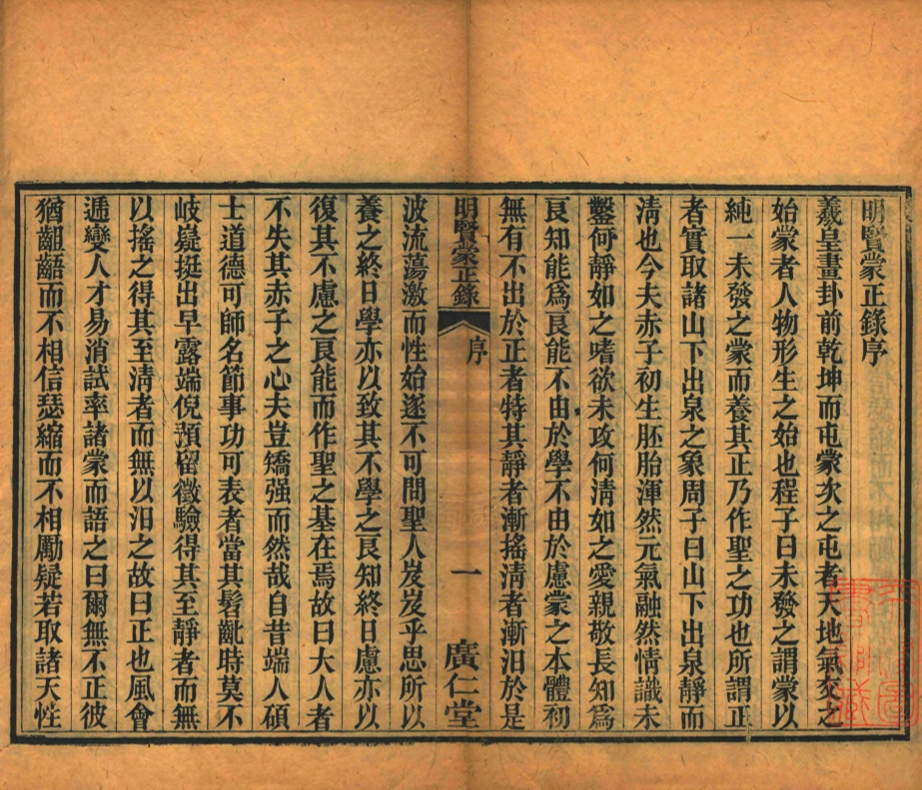 明賢蒙正錄序
羲皇畫卦前乾坤而屯蒙次之屯者天地氣交之
始蒙者人物形生之始也程子曰未發之謂蒙以
純一未發之蒙而養其正乃作聖之功也所謂正
者實取諸山下出泉之象周子曰山下出泉靜而
淸也今夫赤子初生胚胎渾然元氣融然情識未
鑿何靜如之嗜欲未攻何淸如之愛親敬長知爲
良知能爲良能不由於學不由於慮蒙之本體初
無有不出於正者特其靜者漸搖淸者漸汨於是
明賢蒙正錄 序 一 廣仁堂
波流蕩激而性始逐不可問聖人岌岌乎思所以
養之終日學亦以致其不學之良知終日慮亦以
復其不慮之良能而作聖之基在焉故曰大人者
不失其赤子之心夫豈矯强而然哉自昔端人碩
士道德可師名節事功可表者當其髫齓時莫不
岐嶷挺出早露端倪預留徵驗得其至靜者而無
以搖之得其至淸者而無以汨之故曰正也風會
遞變人才易消試率諸蒙而語之曰爾無不正彼
猶齟齬而不相信瑟縮而不相勵疑若取諸天性